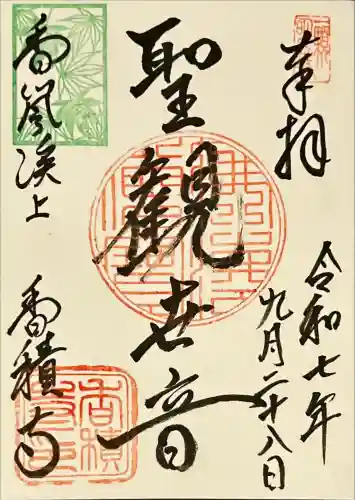 奉拝
令和七年
九月二十八日
聖観世音
香嵐渓上
香積寺
香積